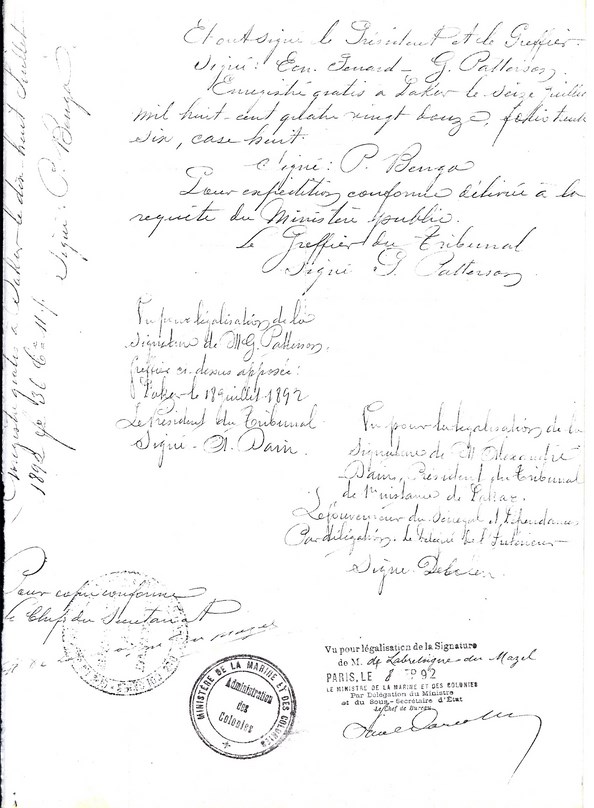 Et ont signé le Président et le Greffier.
Signé: G. Patterson
Enregistré gratis à Dakar le seize juillet
mil huit-cent quatre vingt douze, folio trente
six, case huit.
Signé: P. Benga
Pour expédition conforme délivrée à la
requête du Ministère public.
Le Greffier du Tribunal
Signé G. Patterson
Enregistré gratis à Dakar le dix huit Juillet
1892 36
Signé: P. Benga
Vu pour légalisation de la
signature de M G. Patterson,
greffier ci-dessus apposée:
Dakar le 18 juillet 1892
Le Président du Tribunal
Signé A. Dain
Vu pour la légalisation de la
signature de M Alexandre
Dain, Président du Tribunal
de 1re instance de Dakar.
Le Gouverneur du Sénégal et Dépendances
Par délégation, le de l'Intérieur
Signé
Pour copie conforme
Le Chef du Secrétariat
MINISTÈRE DE LA MARINE ET DES COLONIES
Administration
des
Colonies
Vu pour légalisation de la Signature
de M. du Mazel
PARIS, LE 8 92
LE MINISTRE DE LA MARINE ET DES COLONIES
Par Delegation du Ministre
et du Sous-Secrétaire d'État
Le Chef de Bureau